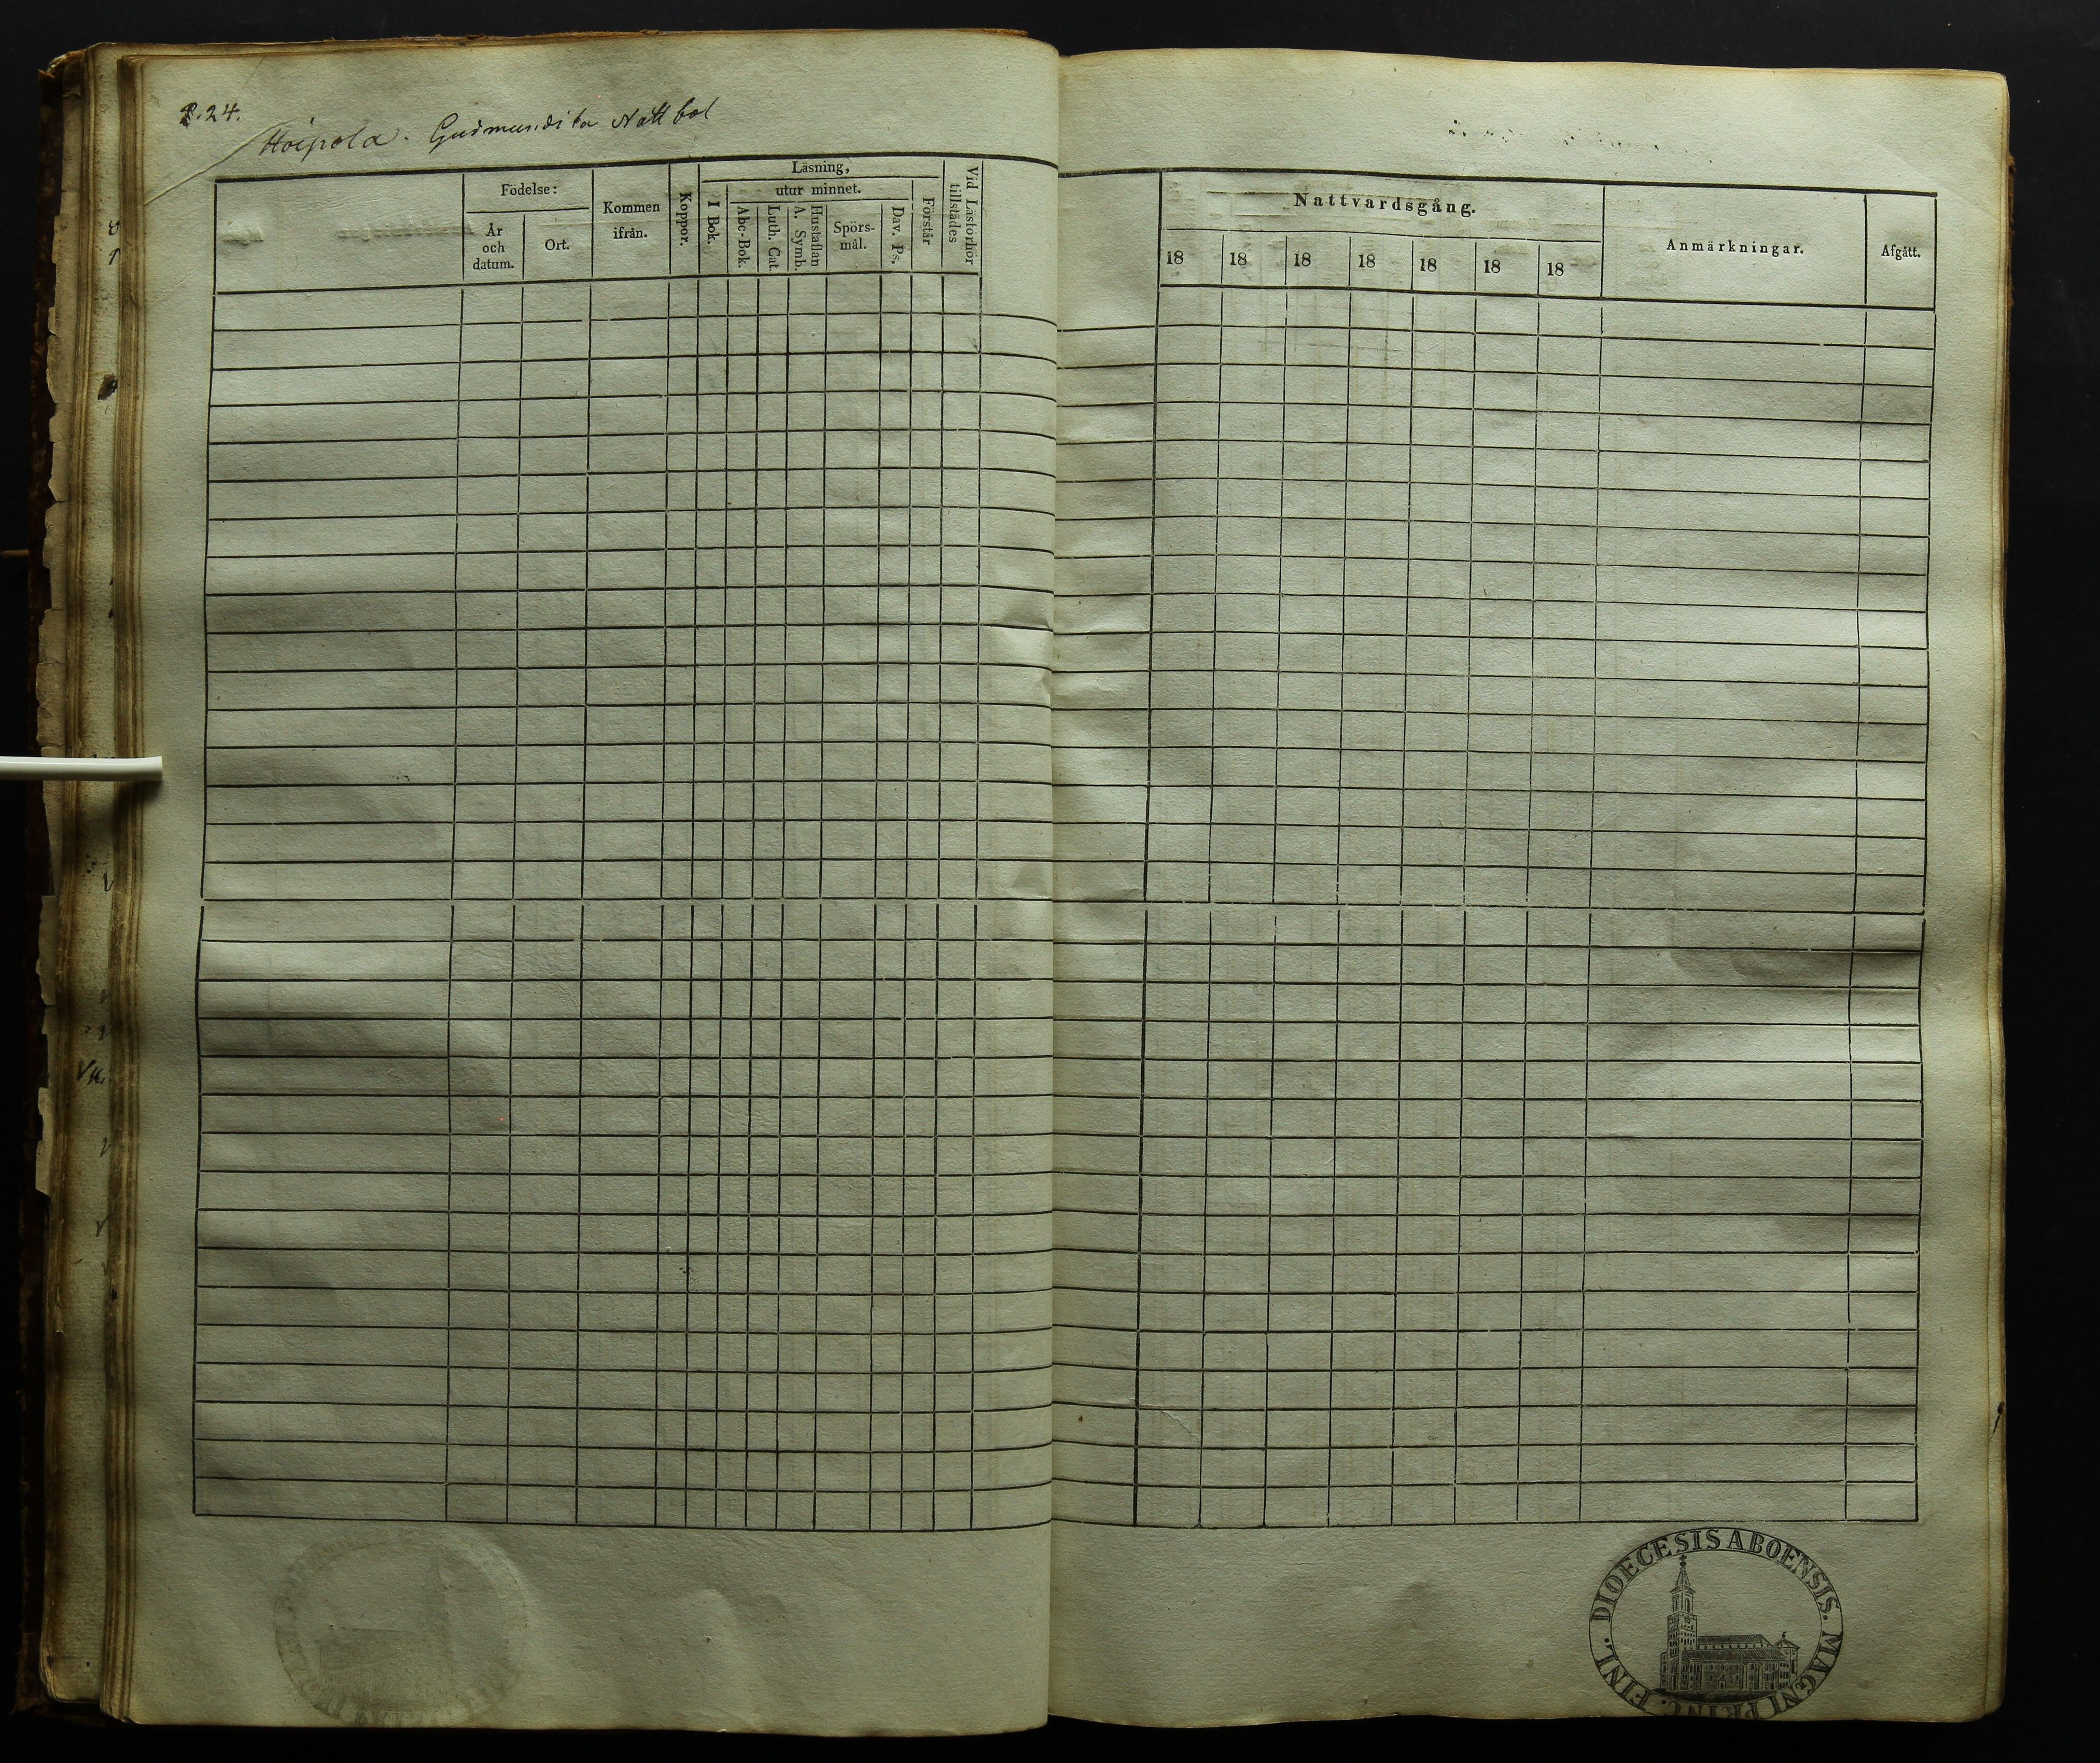 P. 24.
Hoipola. Gudmundila Nattbol
Födelse:
År och datum.
Ort.
Kommen ifrån.
Koppor.
Läsning,
I Bok.
utur minnet.
Abc-Bok.
Luth. Cat.
Hustaflan
A. Symb.
Spörs-
mål.
Dav. Ps.
Förstår
Vid Läsförhör
tillstädes
Nattvardsgång.
18 18 18 18 18 18 18
Anmärkningar.
Afgått.
DIOECESIS ABOENSIS. MAGNI PRINC. FINL.